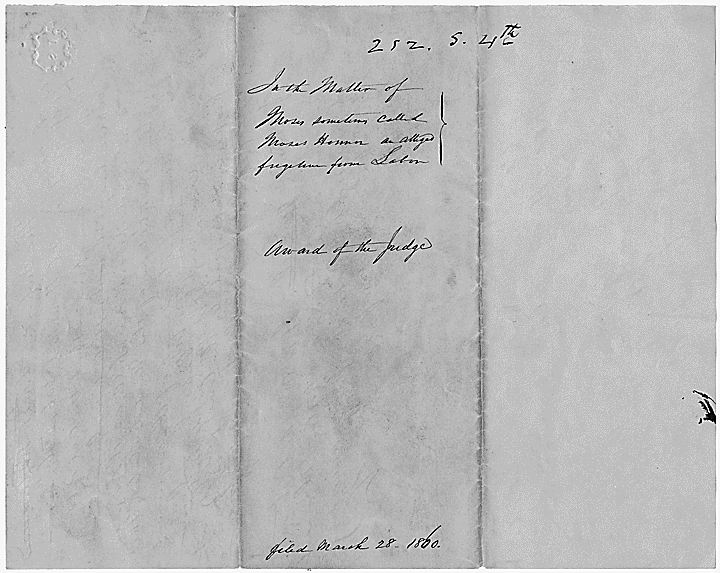 252. S. 4th
In the Matter of
Moses sometimes called
Moses Honnor an alleged
fugitive from Labor
Award of the Judge
filed March 28 - 1860.